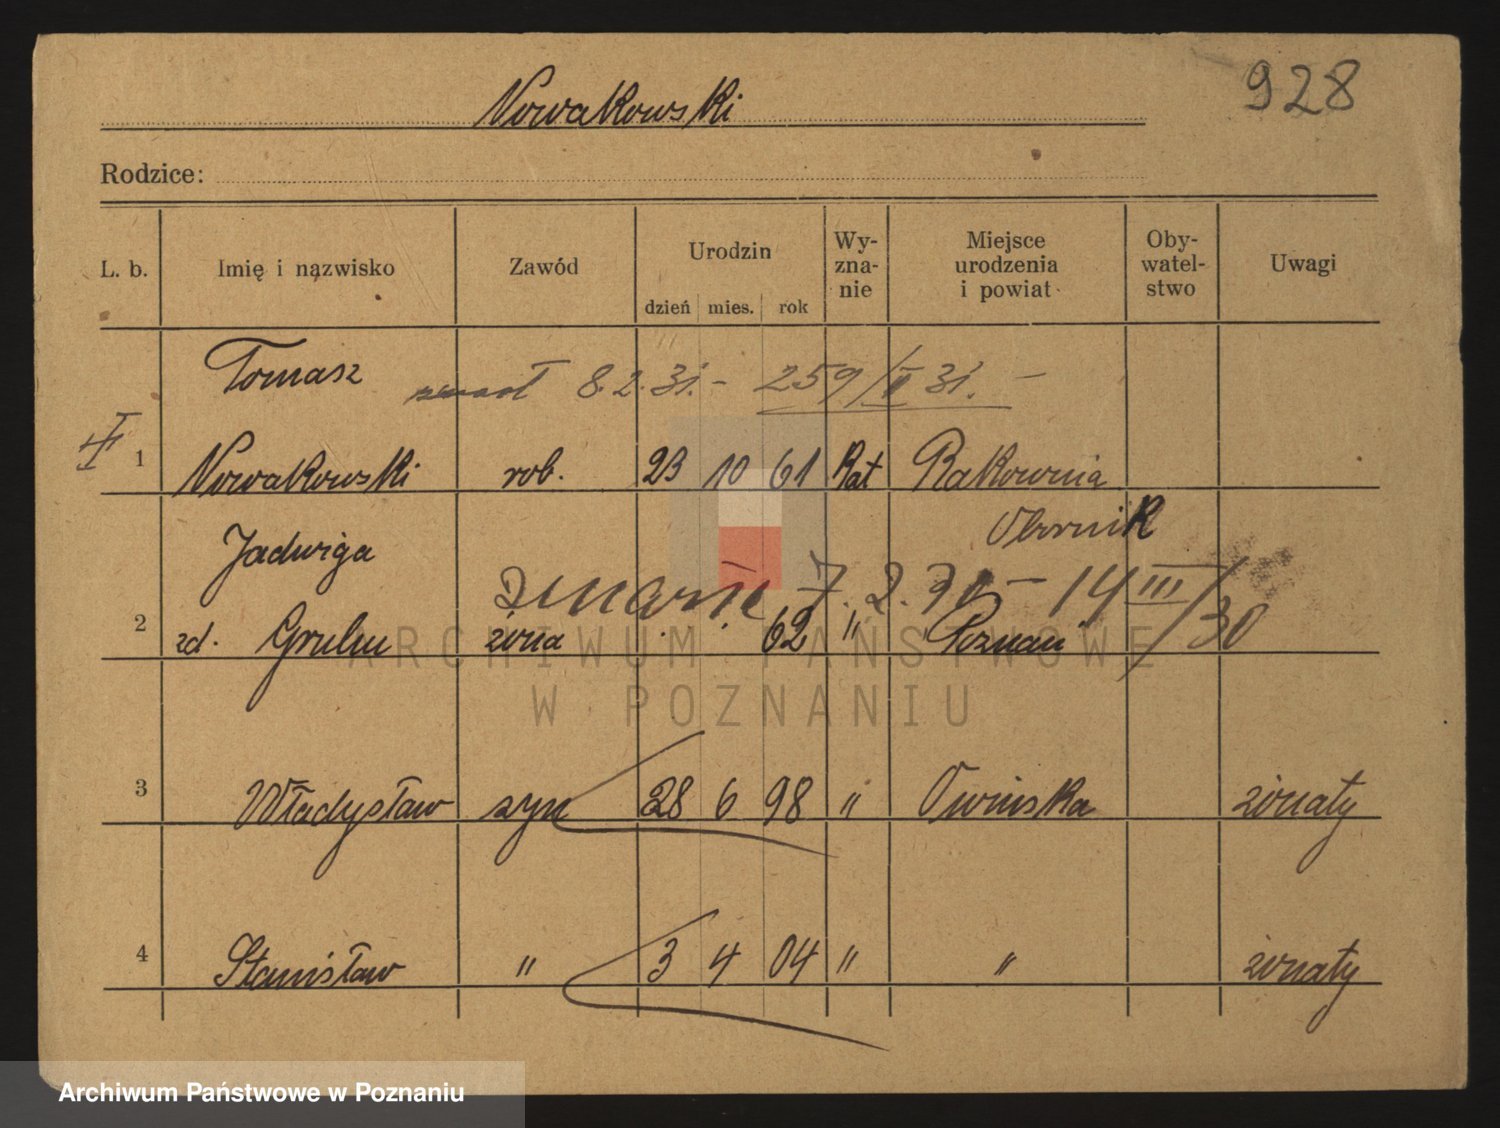 928
Nowakowski
Rodzice:
L. b. Imię i nazwisko Zawód Urodzin dzień mies. rok Wy-zna-nie Miejsce urodzenia i powiat Oby-watel-stwo Uwagi
Tomasz zmarł 8.2.31.- 259/II 31. -
1 Nowakowski rob. 23 10 61 Kat Rakownia
Obornik
Jadwiga
zmarła 7.2.30 - 14 III/30
2 zd. żona 62 " Poznań
3 Władysław syn 28 6 98 " Owinska żonaty
4 Stanisław " 3 4 04 " " żonaty
ARCHIWUM PAŃSTWOWE
W POZNANIU
Archiwum Państwowe w Poznaniu